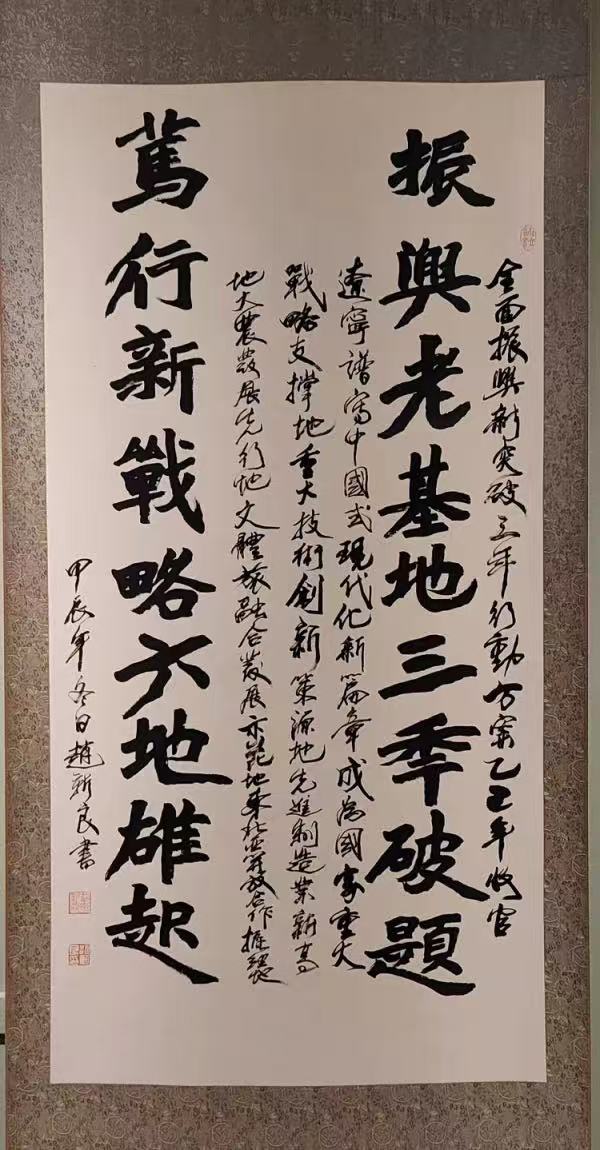 全面振興新突破三年行動方案乙巳年收官
振興老基地三秊破題
遼寧譜寫中國式現代化新篇章成為國家重大
戰略支撐地重大技術創新策源地先進制造業新高
地大農發展先行地文體旅融合發展示範地東北亞開放合作樞紐地
篤行新戰略六地雄起
甲辰年冬日趙新良書